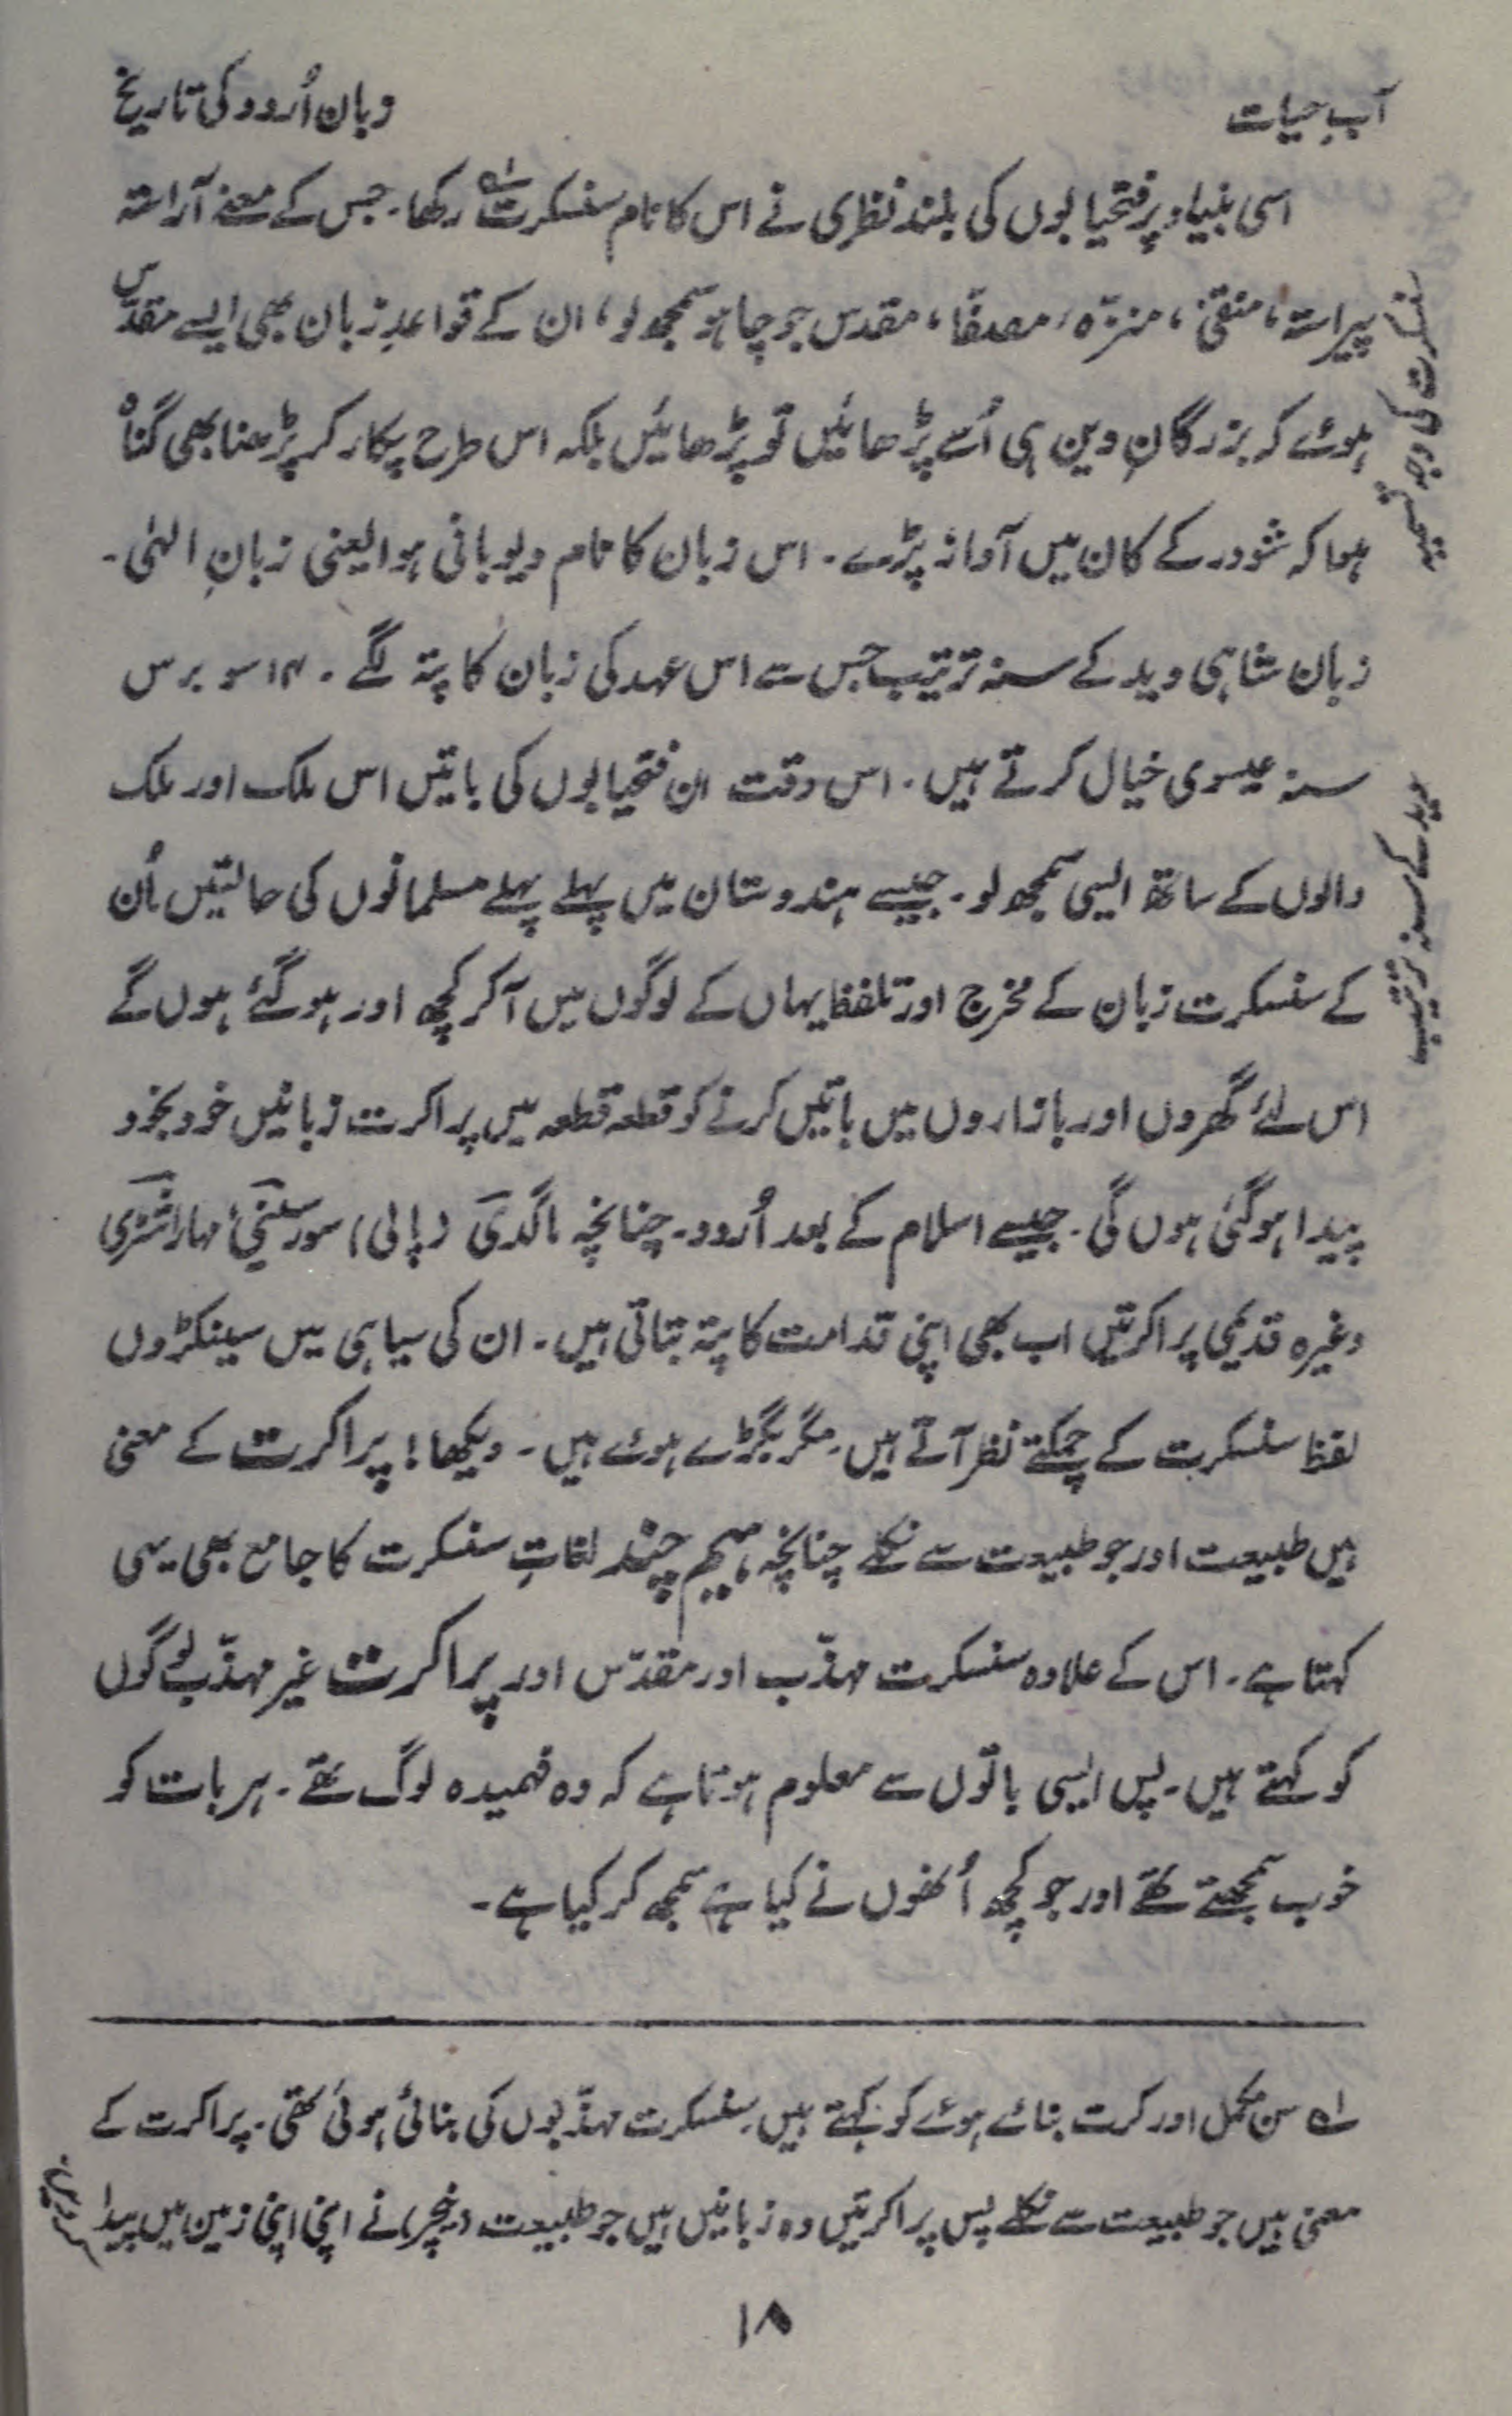 آبِ حیات
وبان اُردو کی تاریخ
اسی بنیاد پر فتحیابوں کی بلند نظری نے اس کا نام سنسکرت؂۱ رکھا۔ جس کے معنے آراستہ
پیراستہ، منقیٰ، منزّہ، مصفّا، مقدس جو چاہو سمجھ لو، ان کے قواعدِ زبان بھی ایسے مقدّس
ہوئے کہ بزرگانِ دین ہی اُسے پڑھائیں تو پڑھائیں بلکہ اس طرح پکار کر پڑھنا بھی گناہ
ہوا کہ شودر کے کان میں آواز پڑے۔ اس زبان کا نام دیوبانی ہوا یعنی زبانِ الہٰی۔
زبان شاہی وید کے سنہ ترتیب جس سے اس عہد کی زبان کا پتہ لگے۔ ۱۴ سو برس
سنہ عیسوی خیال کرتے ہیں۔ اس وقت ان فتحیابوں کی باتیں اس ملک اور ملک
والوں کے ساتھ ایسی سمجھ لو۔ جیسے ہندوستان میں پہلے پہلے مسلمانوں کی حالتیں اُن
کے سنسکرت زبان کے مخرج اور تلفظ یہاں کے لوگوں میں آ کر کچھ اور ہو گئے ہوں گے
اس لئے گھروں اور بازاروں میں باتیں کرنے کو قطعہ قطعہ میں پراکرت زبانیں خود بخود
پیدا ہو گئی ہوں گی۔ جیسے اسلام کے بعد اُردو۔ چنانچہ ماگدی (پالی) سورسینی، مہاراشٹری
وغیرہ قدیمی پراکرتیں اب بھی اپنی قدامت کا پتہ بتاتی ہیں۔ ان کی سیاہی میں سینکڑوں
لفظ سنسکرت کے چمکتے نظر آتے ہیں۔ مگر بگڑے ہوئے ہیں۔ دیکھا! پراکرت کے معنی
ہیں طبیعت اور جو طبیعت سے نکلے چنانچہ ہیم چند لغاتِ سنسکرت کا جامع بھی یہی
کہتا ہے۔ اس کے علاوہ سنسکرت مہذّب اور مقدّس اور پراکرت غیر مہذّب لوگوں
کو کہتے ہیں۔ پس ایسی باتوں سے معلوم ہوتا ہے کہ وہ فہمیدہ لوگ تھے۔ ہر بات کو
خوب سمجھتے تھے اور جو کچھ اُنھوں نے کیا ہے سمجھ کر کیا ہے۔
سنسکرت کی وجہ تسمیہ
وید کے سنہ ترتیب
؂۱ سن مکمل اور کرت بنائے ہوئے کو کہتے ہیں۔ سنسکرت مہذّبوں کی بنائی ہوئی تھی۔ پراکرت کے
معنی ہیں جو طبیعت سے نکلے پس پراکرتیں وہ زبانیں ہیں جو طبیعت (نیچر) نے اپنی اپنی زمین میں پیدا
کر دیں۔
۱۸